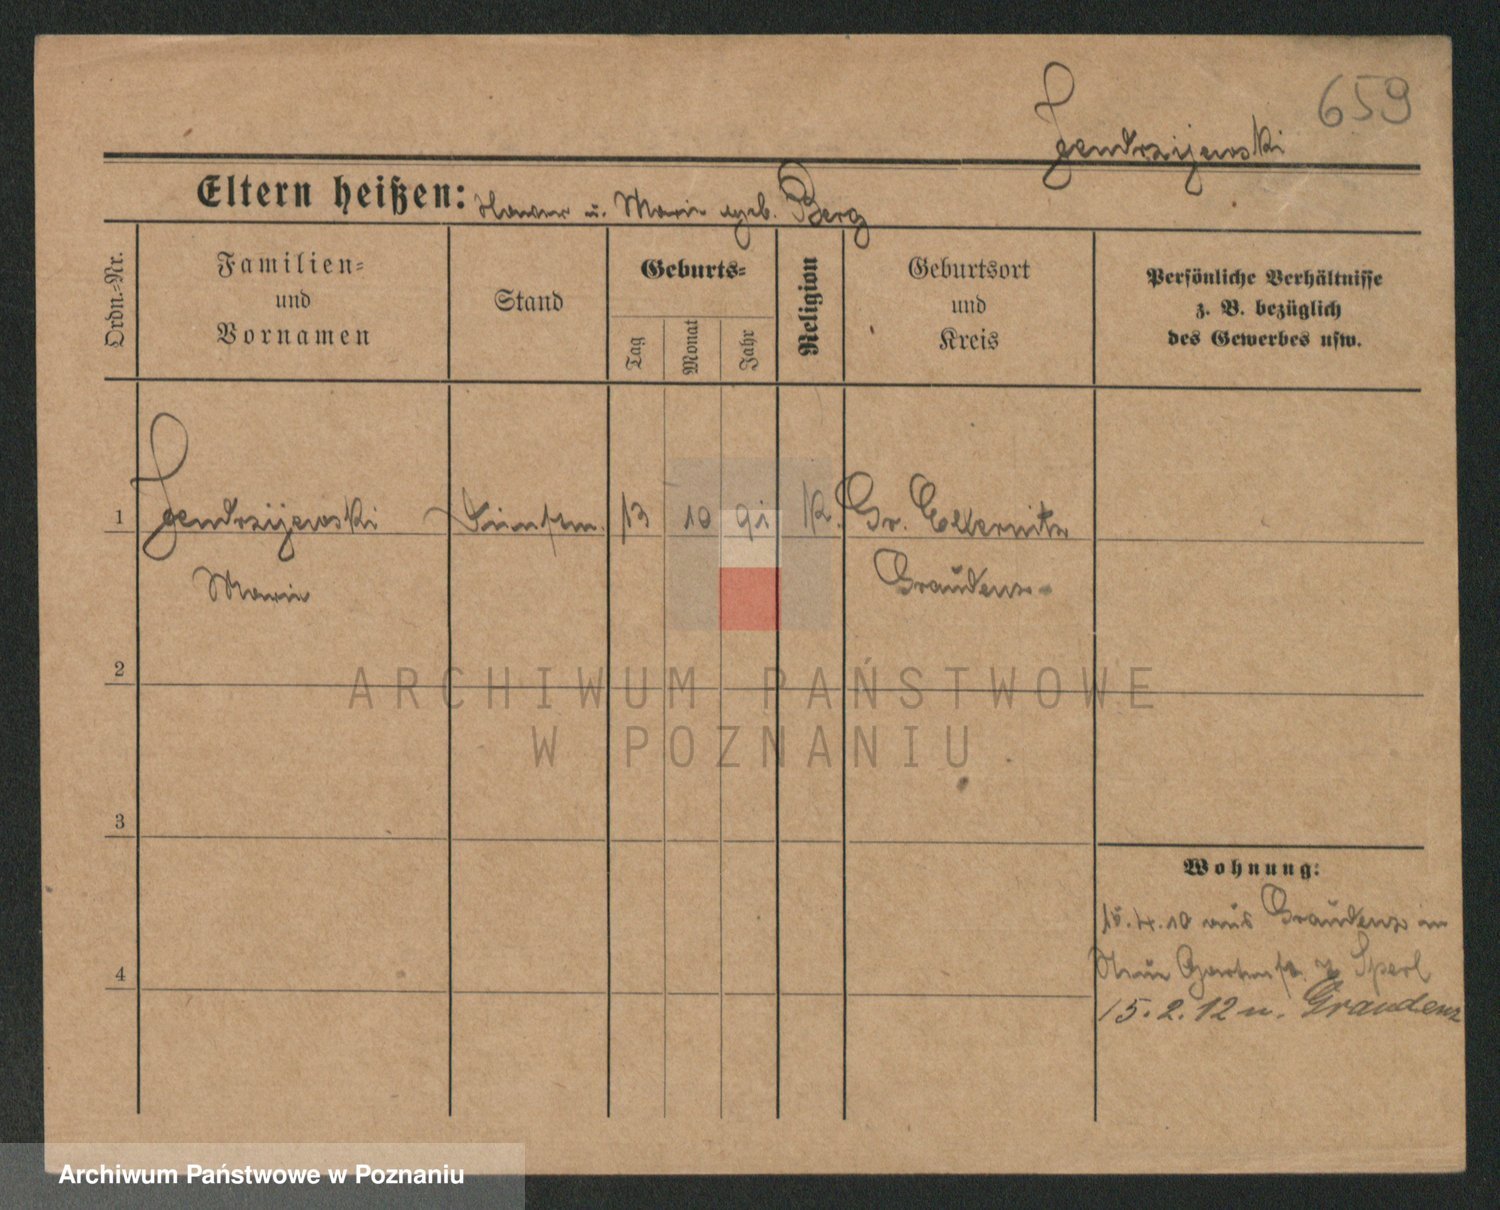 659
Jendrzijewski
Eltern heißen: u. Marie geb. Berg
Ordn.-Nr.
Familien-
und
Vornamen
Stand
Geburts-
Tag
Monat
Jahr
Religion
Geburtsort
und
Kreis
Persönliche Verhältnisse
z. B. bezüglich
des Gewerbes usw.
1 Jendrzijewski 13 10 91 K. Gr. Ellernitz
Marie Graudenz
2
ARCHIWUM PAŃSTWOWE
W POZNANIU
3
Wohnung:
15.4.10 aus Graudenz in
4
Neue Gartenstr. Sperl
15.2.12 n. Graudenz
Archiwum Państwowe w Poznaniu